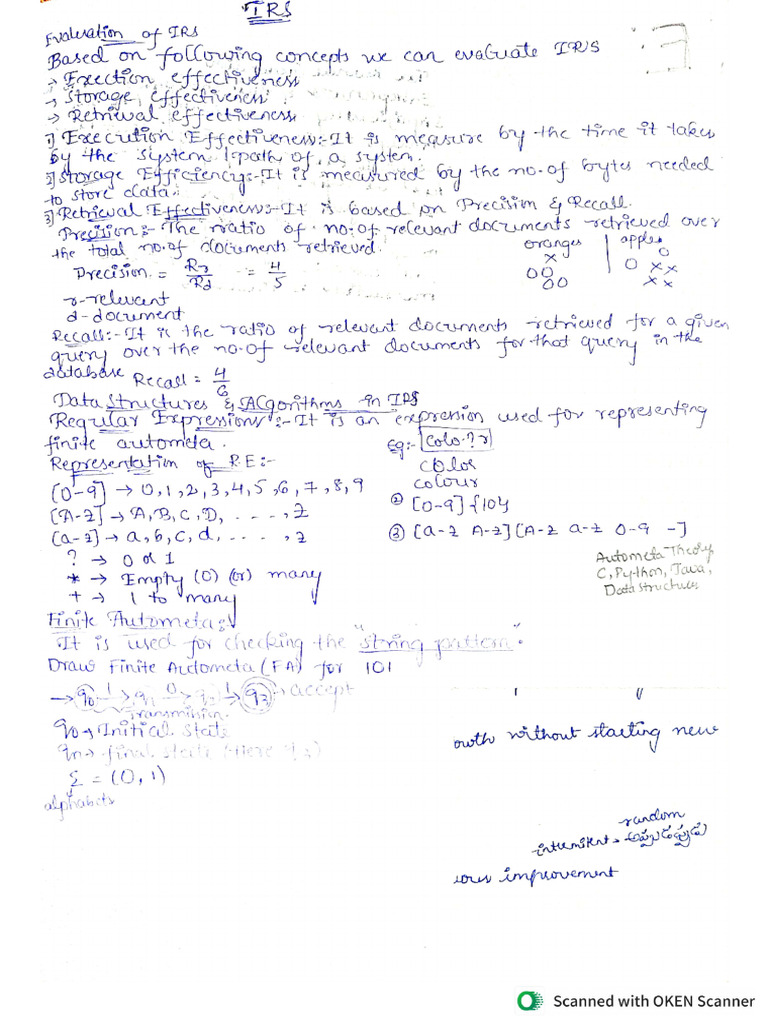 IRS
Evaluation of IRS
Based on following concepts we can evaluate IRS
→ Exection effectiveness
→ Storage effectiveness
→ Retrieval effectiveness
1) Execution Effectiveness:- It is measure by the time it takes
by the system /path of a system.
2) Storage Efficiency:- It is measured by the no. of bytes needed
to store data.
3) Retrieval Effectiveness:- It is based on Precision & Recall.
Precision:- The ratio of no. of relevant documents retrieved over
the total no. of documents retrieved.
oranges | apples
x | o
oo | o xx
oo | xx
Precision = Rr/Rd = 4/5
r-relevant
d-document
Recall:- It is the ratio of relevant documents retrieved for a given
query over the no. of relevant documents for that query in the
database Recall = 4/6
Data Structures & Algorithms in IRS
Regular Expressions:- It is an expression used for representing
finite autometa.
Eg:- Colo?r
color
colour
Representation of R.E:-
[0-9] → 0, 1, 2, 3, 4, 5, 6, 7, 8, 9
② [0-9]{10}
[A-Z] → A, B, C, D, - - - -, Z
[a-z] → a, b, c, d, - - - -, z
③ [a-z A-Z][A-Z a-z 0-9 -]
? → 0 or 1
* → Empty (0) (or) many
+ → 1 to many
Autometa Theory
C, Python, Java,
Data structures
Finite Autometa:
It is used for checking the "string pattern".
Draw Finite Autometa (FA) for 101
→ q0 1→ q1 0→ q2 1→ q3 → accept
q0 → Initial state
qn → final state (Here q3)
Σ = (0, 1)
alphabets
owth without starting new
random
intermitent = అప్పుడప్పుడు
ious improvement
Scanned with OKEN Scanner